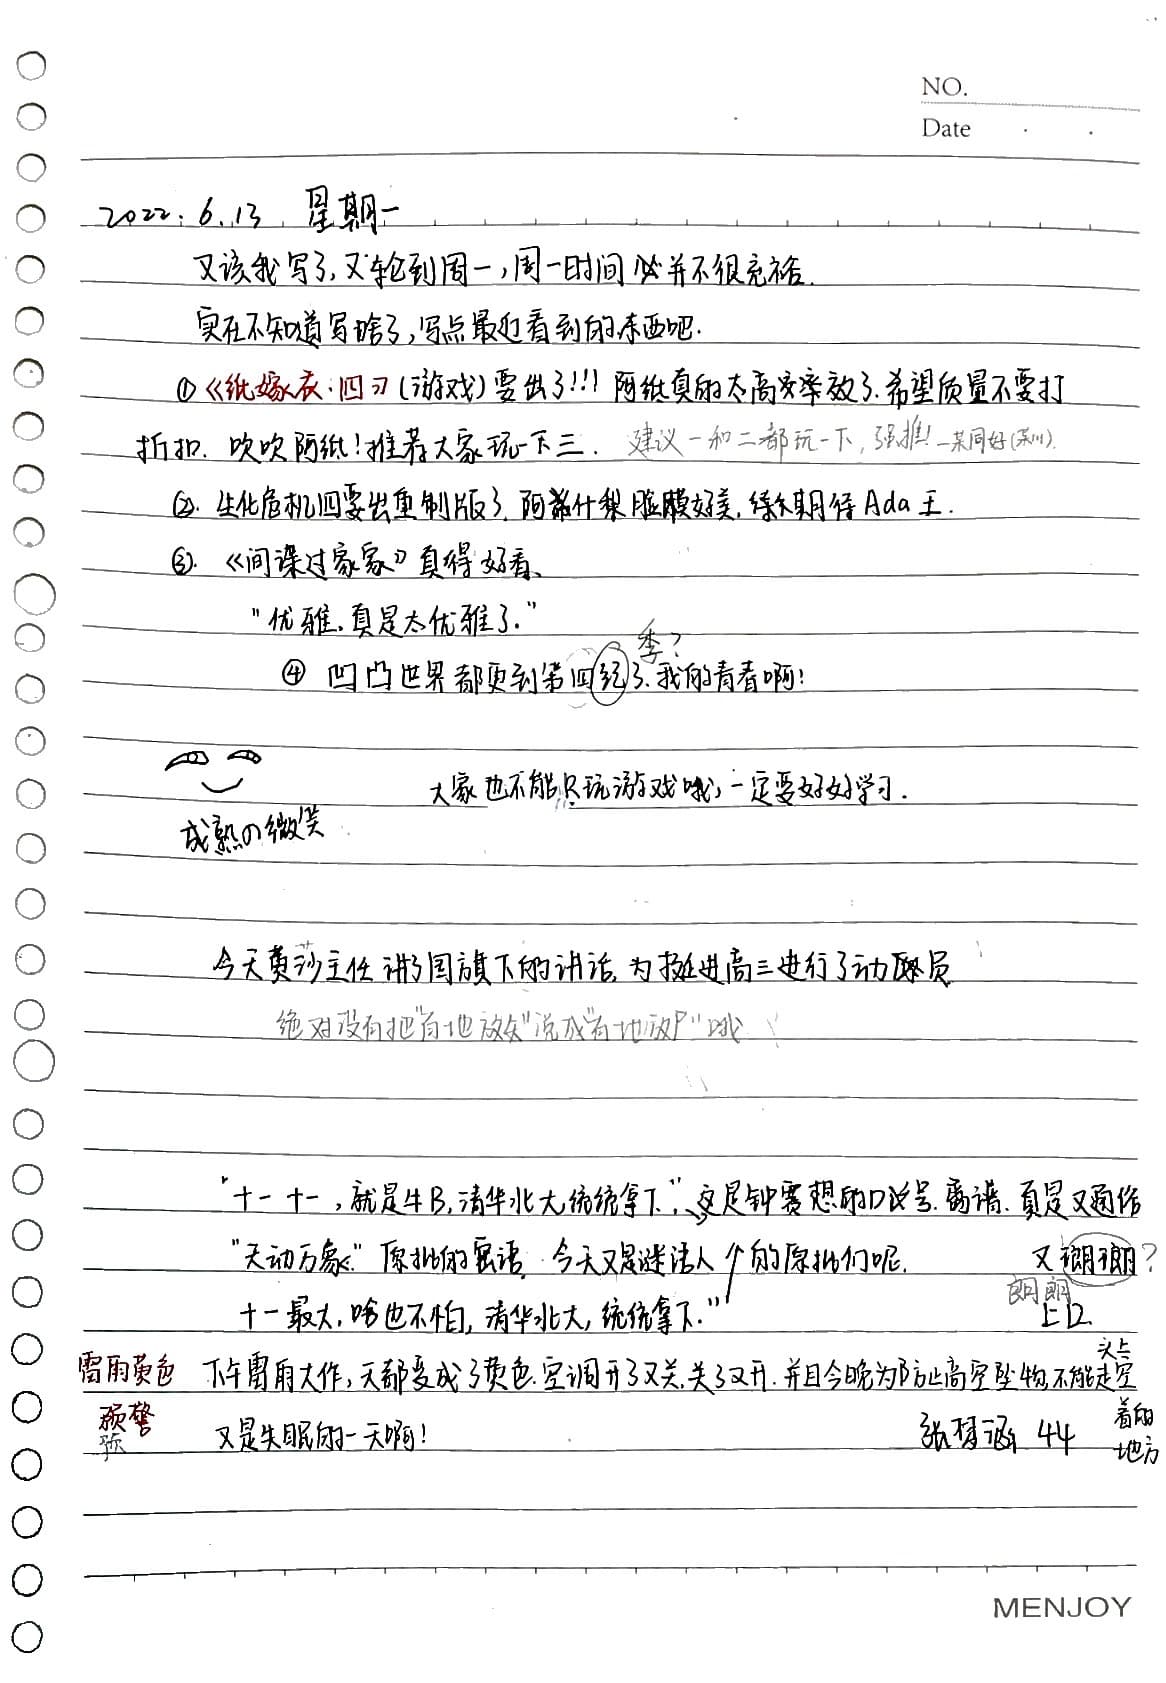 NO.
Date
2022.6.13 星期一
又该我写了,又轮到周一,周一时间并不很充裕.
实在不知道写啥了,写点最近看到的东西吧.
①《纸嫁衣·四》(游戏)要出了!!! 阿纸真的太高效率了.希望质量不要打
折扣. 吹吹阿纸!推荐大家玩一下三. 建议一和二都玩一下,强推! —某同好
②. 生化危机四要出重制版了.阿什梨脸膜好美.持续期待Ada王.
③. 《间谍过家家》真得好看.
“优雅.真是太优雅了.”
季?
④ 凹凸世界都更到第四了.我的青春啊!
大家也不能只玩游戏哦,一定要好好学习.
成熟の微笑
今天黄莎主任讲了国旗下的讲话,为挺进高三进行了动员
绝对没有把“有地放矢”说成“有地放尸”哦
“十一十一,就是牛B,清华北大,统统拿下.”,这是钟赛想的口号.离谱.真是又通俗
“天动万象” 原批的密语. 今天又是谜语人的原批们呢. 又朗朗?
朗朗
十一最大,啥也不怕,清华北大,统统拿下.” 上口.
雷雨黄色 下午雷雨大作,天都变成了黄色.空调开了又关,关了又开.并且今晚为防止高空坠物,不能走空
头点
预警 又是失眠的一天啊! 张梦涵 44 着的
预 地方
MENJOY